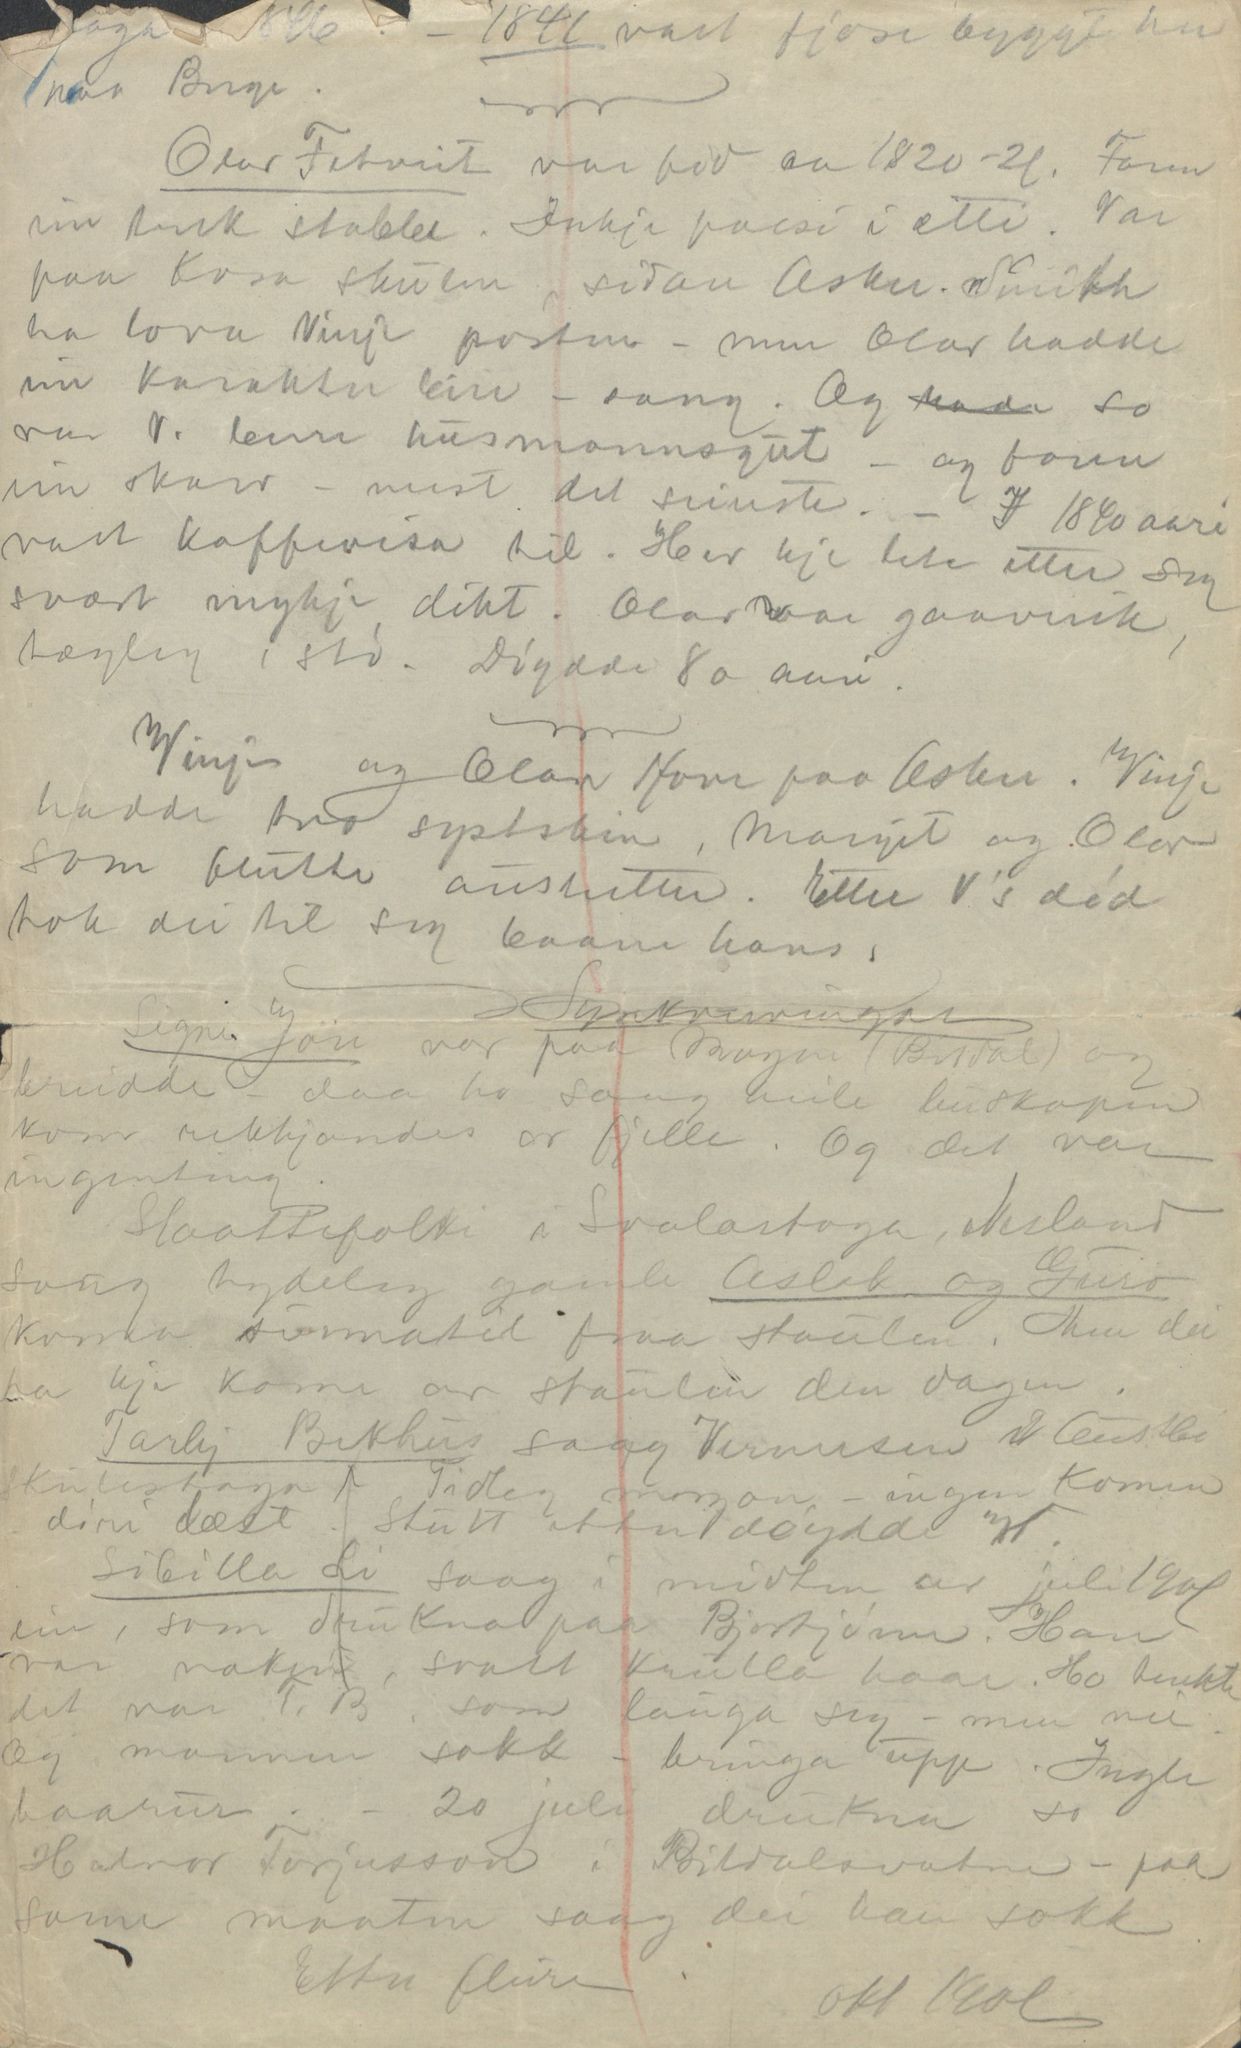 1846. - 1841 vart fjose bygt
paa Bugi.
Olav Fetveit var fød ca 1820-21. Faren
ein stabbe. Inkje poesi i ætti. Var
paa Kosa skulen, sidan Asker.
ha lova Vinje posten - men Olav hadde
ein karakter - sang. Og hadde so
var V. berre husmannsgut - og faren
ein skarv - mest det seinste. - I 1840 aari
vart Kaffevisa til. Hev kje late etter seg
svært mykje dikt. Olav var gaaverik,
hægleg i stó. Døydde 80 aari.
Vinje og Olav Hovi paa Asker. Vinje
hadde tvo systskin, Margit og Olav
som flutte austetter. Etter V's død
tok dei til seg baani hans.
Synkverningar
Signe Jori var paa Mogen (Bitdal) og
- daa ho saag heile buskapen
kom rekkjandes av fjelle. Og det var
ingenting.
Slaattefolki i Svalastoga, Nesland
saag tydeleg gamle Aslak og Guro
koma sumatil fraa staulen. Men dei
ha kje kome av staulen den dagen.
Tarkj Bekhus saag i Austbø
skulestoga. Tidleg morgon - ingen komen
- døri læst. Stutt etter døydde
Sibilla Li saag i midten av juli 1901
ein, som drukna paa Bjortjønn. Han
var naken, svart krulla haar. Ho tenkte
det var T. B. som lauga seg - men nei.
Og mannen sokk - kringa upp. Ingle
haarur. - 20 juli drukna so
Halvor Torjusson i Bitdalsvatne - paa
same maaten saag dei han sokk
Etter fleire
okt 1901